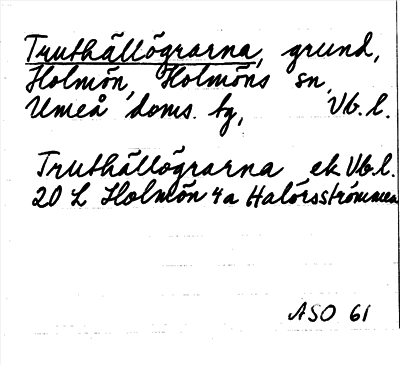 Truthällögrarna, grund,
Holmön, Holmöns sn,
Umeå doms. tg, Vb. l.
Truthällögrarna ek Vb.l.
20 L Holmön 4a Halörsströmmen
ASO 61